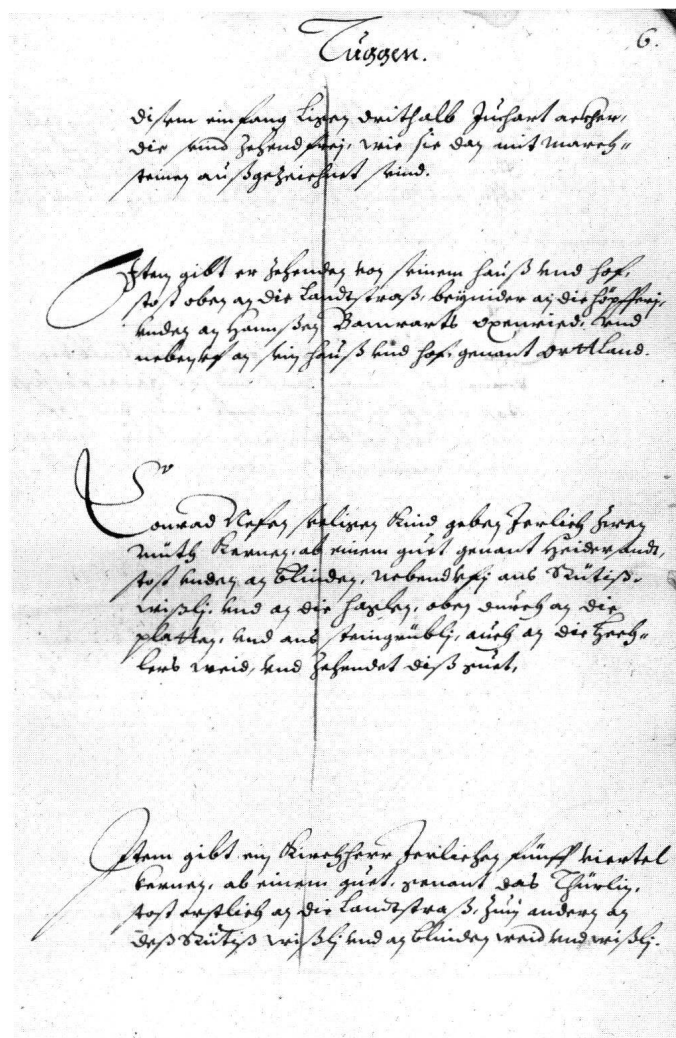 6.
Tuggen.
disem einfang ligen drithalb Juchart ackher,
die sind zehend frej, wie sie dan mit march=
steinen außgezeichnet sind.
Item gibt er zehenden von seinem hauß vnd hof,
stost oben an die Landtstraß, beynider an die höpfferj,
vnden an Hannßen Banwarts oxenried, vnd
nebent an sein hauß vnd hof, genant ortland.
Conrad Nefen seligen Kind geben Jerlich zwen
mütt kernen, ab einem guet genant Heidersandt,
stost vnden an blinden, nebendt ans Rütiß
wißlj, vnd an die haslen, oben durch an die
platten, vnd ans steingrüblj, auch an die hech=
lers weid, vnd zehendet diß guet,
Item gibt ein Kirchherr Jerlichen fünff viertel
kernen, ab einem guet, genant das Thürlin,
stost erstlich an die Landtstraß, zum andern an
deß Rütiß wißlj vnd an blinden weid vnd wißlj.